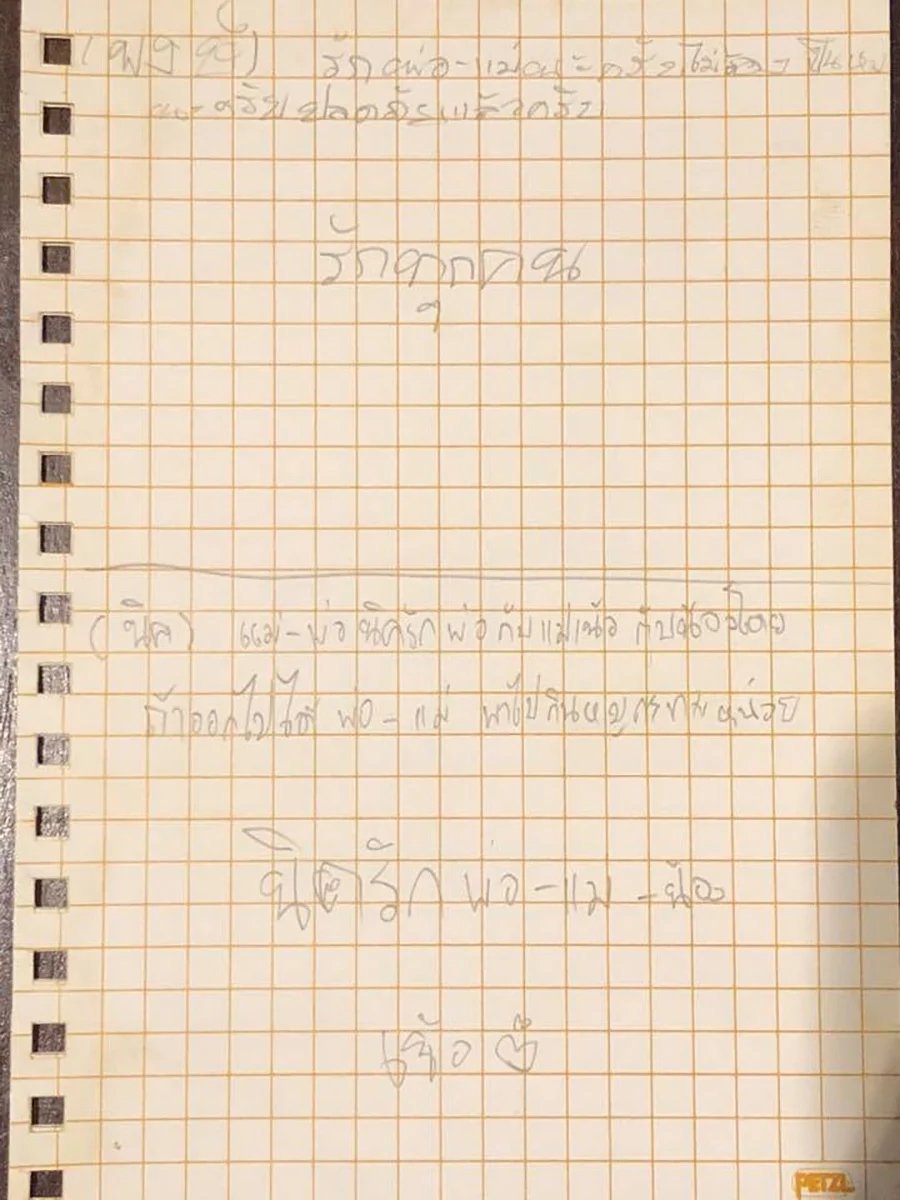 รักพ่อ-แม่นะครับไม่ต้อง เป็นห่วง
นะครับปลอดภัยแล้วครับ
รักทุกคน
(นิค) แม่-พ่อนิครักพ่อกับแม่เน้อ กับน้องโตย
ถ้าออกไปได้ พ่อ-แม่ พาไปกินหมูกระทะหน่วย
นิครัก พ่อ-แม่ -น้อง
เน้อ
PETZL